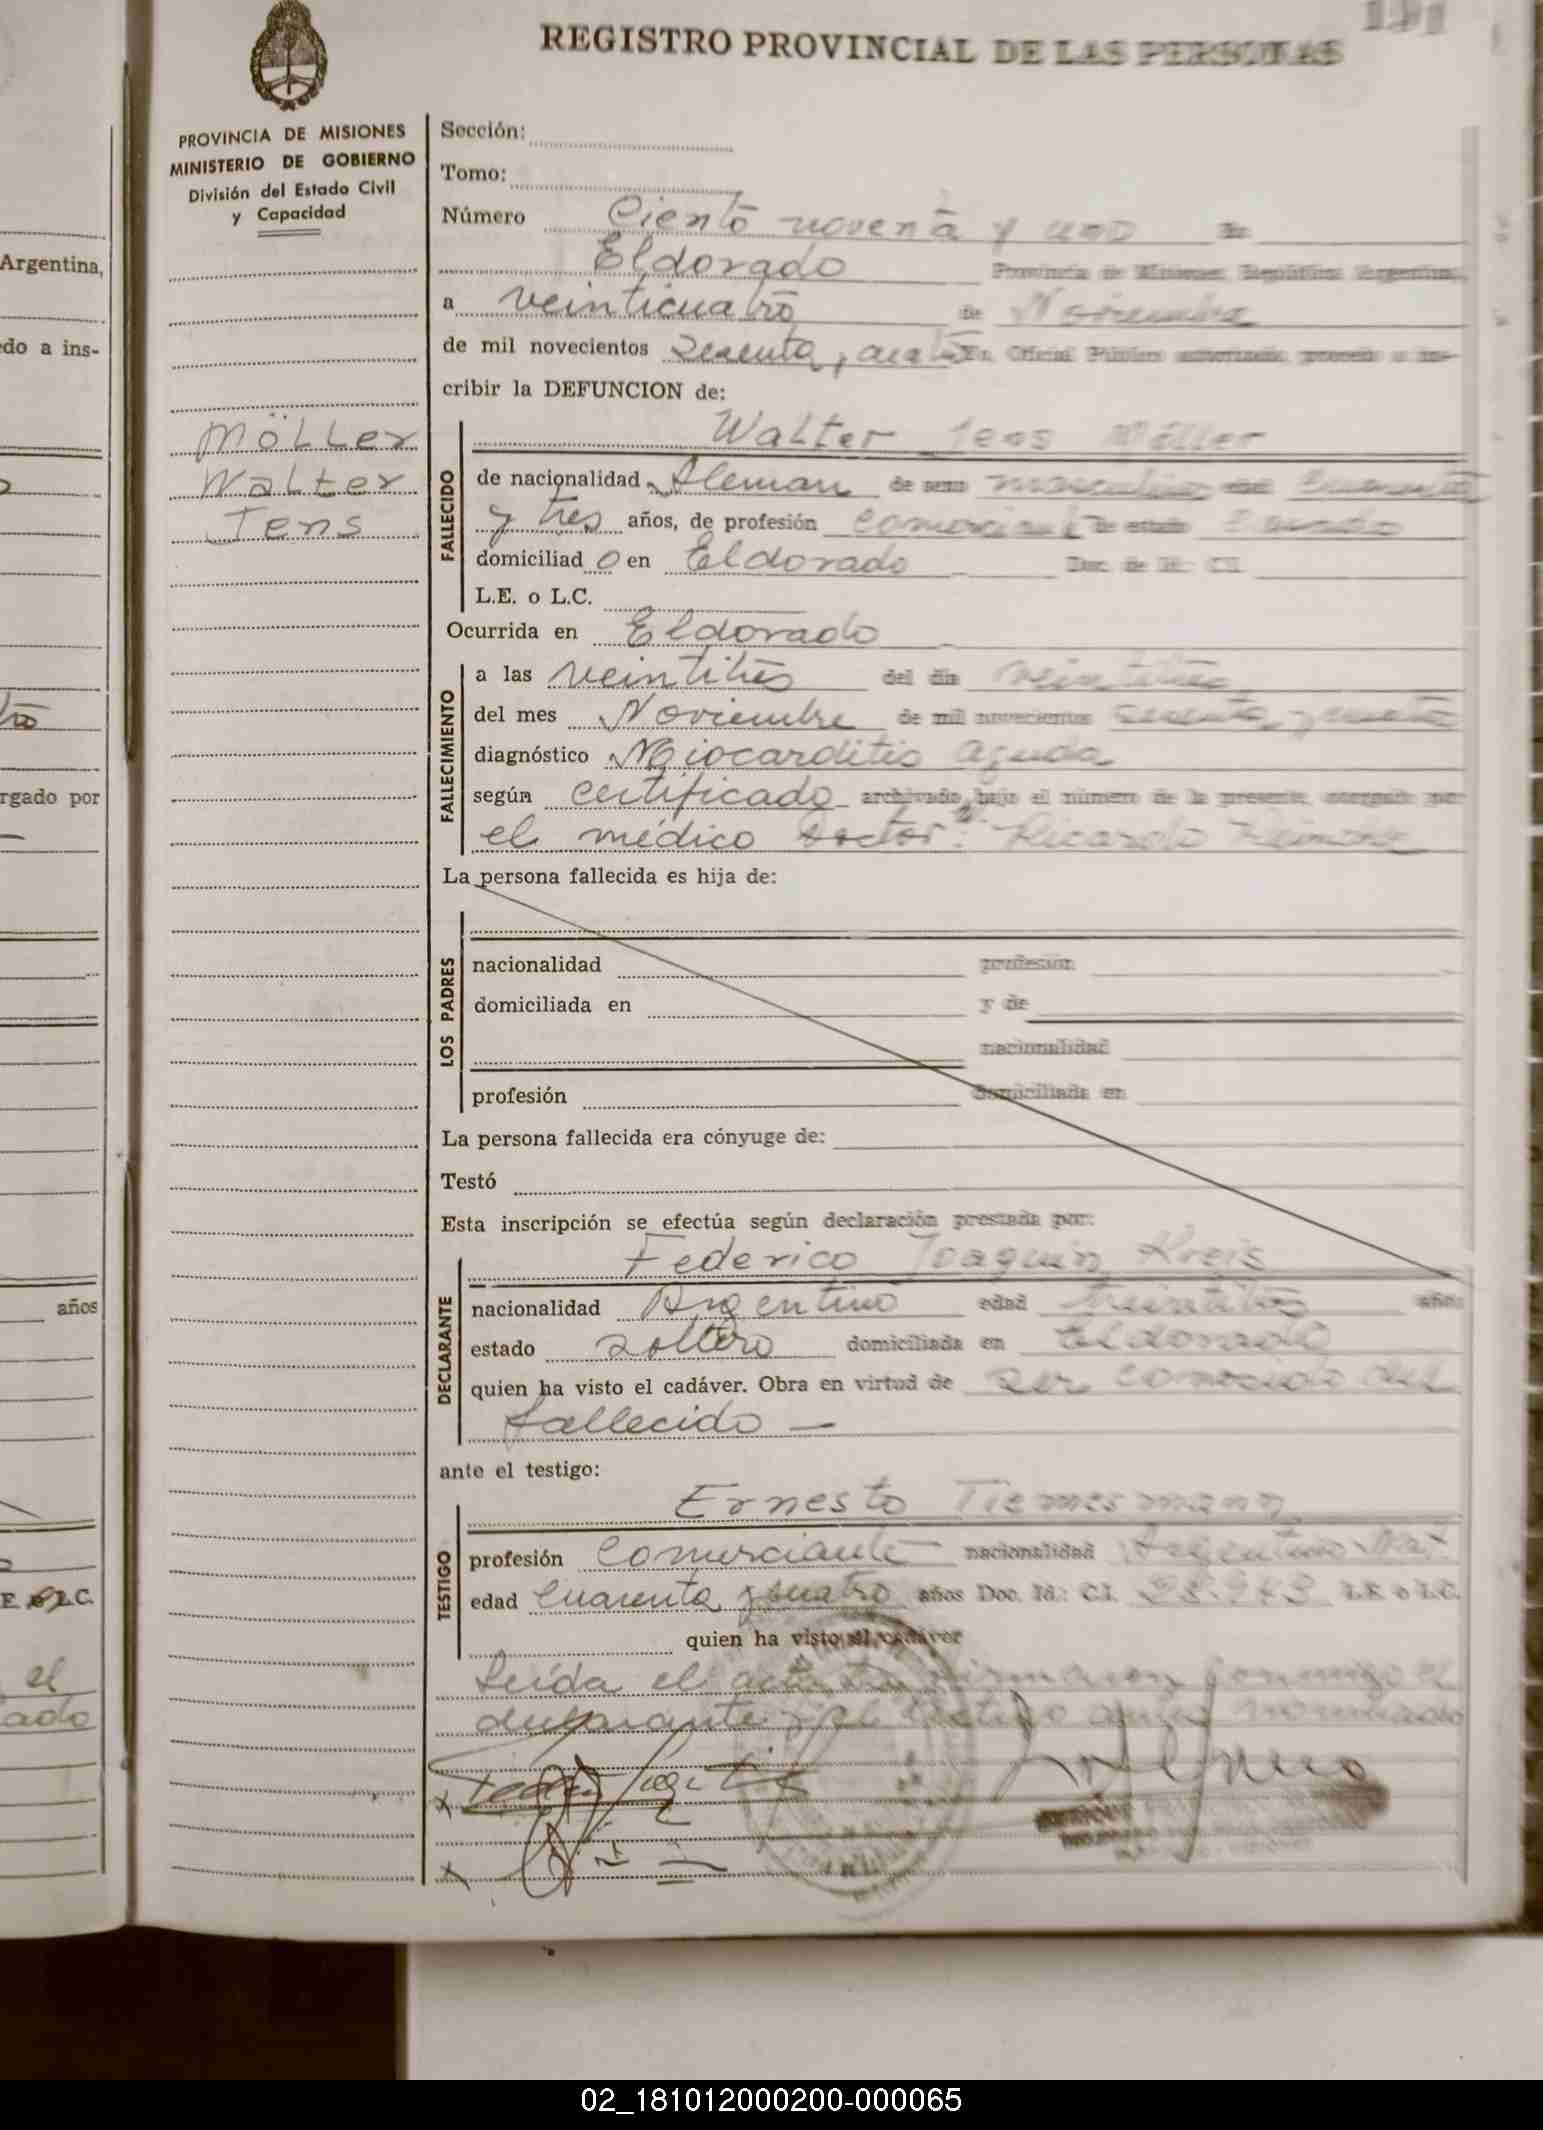 191
REGISTRO PROVINCIAL DE LAS PERSONAS
PROVINCIA DE MISIONES
MINISTERIO DE GOBIERNO
División del Estado Civil
y Capacidad
Argentina,
do a ins-
rgado por
años
el
ado
Möller
Walter
Jens
Sección:
Tomo:
Número Ciento noventa y uno En
Eldorado Provincia de Misiones, República Argentina,
a veinticuatro de Noviembre
de mil novecientos Sesenta y cuatro Yo, Oficial Público autorizado, procedo a ins-
cribir la DEFUNCION de:
Walter Jens Möller
FALLECIDO
de nacionalidad Aleman de sexo masculino edad Cuarenta
y tres años, de profesión Comerciante de estado Casado
domiciliad o en Eldorado Doc. de Id.: C.I.
L.E. o L.C.
Ocurrida en Eldorado
FALLECIMIENTO
a las veintitres del día veintitres
del mes Noviembre de mil novecientos sesenta y cuatro
diagnóstico Miocarditis aguda
según certificado archivado bajo el número de la presente, otorgado por
el médico doctor: Ricardo
La persona fallecida es hija de:
LOS PADRES
nacionalidad profesión
domiciliada en y de
nacionalidad
profesión domiciliada en
La persona fallecida era cónyuge de:
Testó
Esta inscripción se efectúa según declaración prestada por:
Federico Joaquin Kreis
DECLARANTE
nacionalidad Argentino edad veintitres años
estado soltero domiciliada en Eldorado
quien ha visto el cadáver. Obra en virtud de ser conocido del
fallecido —
ante el testigo:
Ernesto Tiemesmann
TESTIGO
profesión Comerciante nacionalidad Argentino Nat
edad Cuarenta y cuatro años Doc. Id.: C.I. L.E. o L.C.
quien ha visto el cadáver
Leída el acta la firmaron conmigo el
declarante y el testigo antes nombrado
02_181012000200-000065